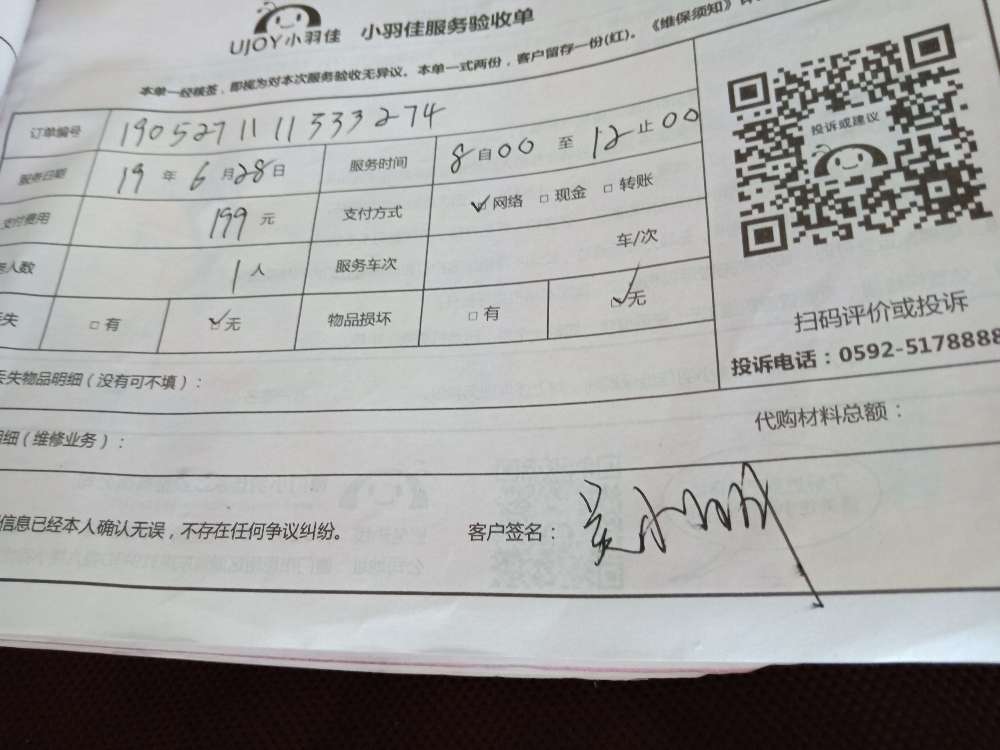 UJOY小羽佳 小羽佳服务验收单
本单一经核签，即视为对本次服务验收无异议。本单一式两份，客户留存一份(红)。《维保须知》
订单编号 190527111133327 4
服务日期 19 年 6 月 28 日 服务时间 8 自 00 至 12 止 00
支付费用 199 元 支付方式 ☑网络 □现金 □转账
人数 1 人 服务车次 车/次
失 □有 ☑无 物品损坏 □有 ☑无
丢失物品明细（没有可不填）：
明细（维修业务）： 代购材料总额：
信息已经本人确认无误，不存在任何争议纠纷。 客户签名：
投诉或建议
扫码评价或投诉
投诉电话：0592-5178888